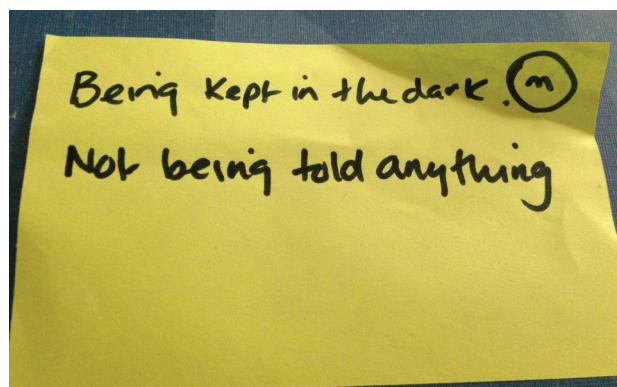 Being kept in the dark. m
Not being told anything